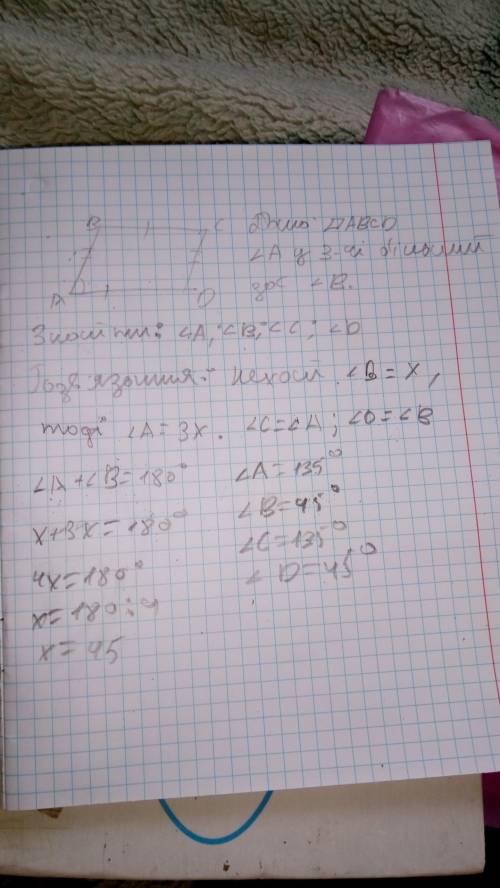 B C
A D
Дано: ▱ABCD
∠A у 3-чі більший
за ∠B.
Знайти: ∠A; ∠B; ∠C; ∠D
Розв'язання: нехай ∠B = x,
тоді ∠A = 3x. ∠C = ∠A; ∠D = ∠B
∠A + ∠B = 180°
x + 3x = 180°
4x = 180°
x = 180 : 4
x = 45
∠A = 135°
∠B = 45°
∠C = 135°
∠D = 45°